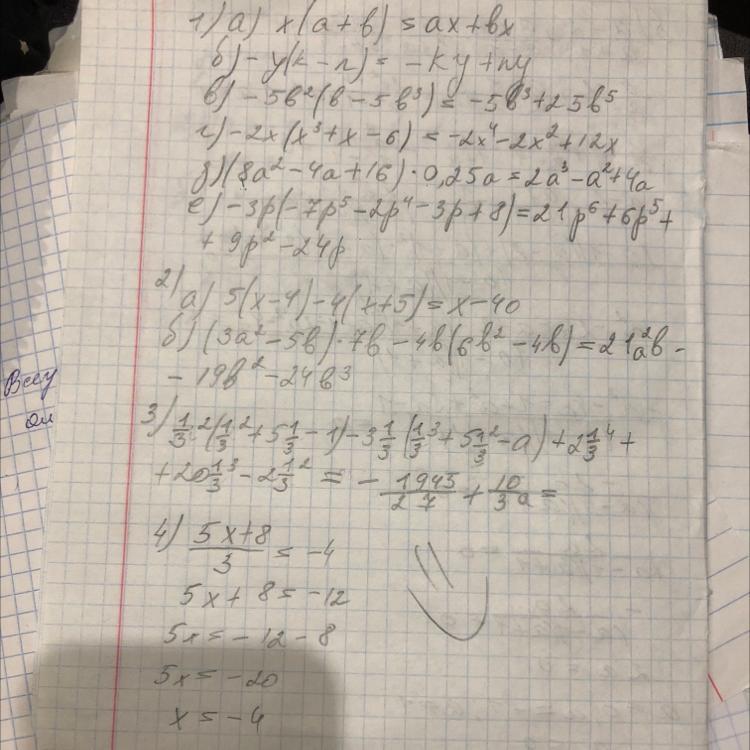 1) а) x(a+b) = ax+bx
б) -y(k-n) = -ky+ny
в) -5b²(b-5b³) = -5b³+25b⁵
г) -2x(x³+x-6) = -2x⁴-2x²+12x
д) (8a²-4a+16)·0,25a = 2a³-a²+4a
е) -3p(-7p⁵-2p⁴-3p+8) = 21p⁶+6p⁵+
+9p²-24p
2) а) 5(x-4)-4(x+5) = x-40
б) (3a²-5b)·7b-4b(6b²-4b) = 21a²b-
-19b²-24b³
3) 1/3²(1/3²+5 1/3-1)-3 1/3(1/3³+5 1/3²-a)+2 1/3⁴+
+20 1/3³-2 1/3² = -1945/27+10/3a=
4) (5x+8)/3 = -4
5x+8=-12
5x=-12-8
5x=-20
x=-4
Всу
ол